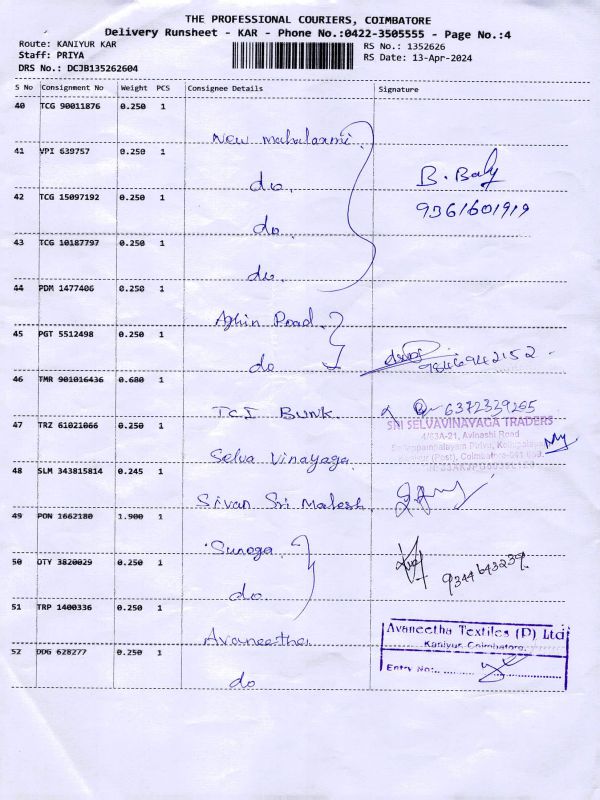 THE PROFESSIONAL COURIERS, COIMBATORE
Delivery Runsheet - KAR - Phone No.:0422-3505555 - Page No.:4
Route: KANIYUR KAR
RS No.: 1352626
Staff: PRIYA
RS Date: 13-Apr-2024
DRS No.: DCJB135262604
S No Consignment No Weight PCS Consignee Details Signature
40 TCG 90011876 0.250 1
New Mahalaxmi
41 VPI 639757 0.250 1
do.
B. Baly
42 TCG 15097192 0.250 1
9361601919
do.
43 TCG 10187797 0.250 1
do.
44 PDM 1477406 0.250 1
Road.
45 PGT 5512498 0.250 1
do
9846942152
46 TMR 901016436 0.680 1
TCI BUNK.
6372339265
SRI SELVAVINAYAGA TRADERS
47 TRZ 61021066 0.250 1
4/63A-21, Avinashi Road
Selva Vinayaga.
(Post), Coimbatore-641
48 SLM 343815814 0.245 1
Sivan Sri Malesh.
49 PON 1662180 1.900 1
Sunoga.
50 DTY 3820029 0.250 1
9344643239
do.
51 TRP 1400336 0.250 1
Avaneetha
Avaneetha Textiles (P) Ltd
Kaniyur, Coimbatore.
52 DDG 628277 0.250 1
Entry No:
do